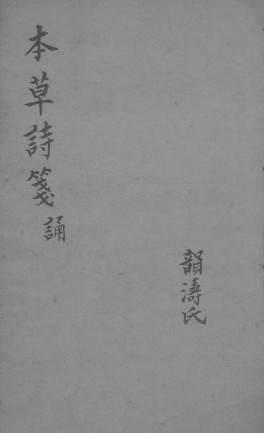 本草詩箋誦
韻濤氏